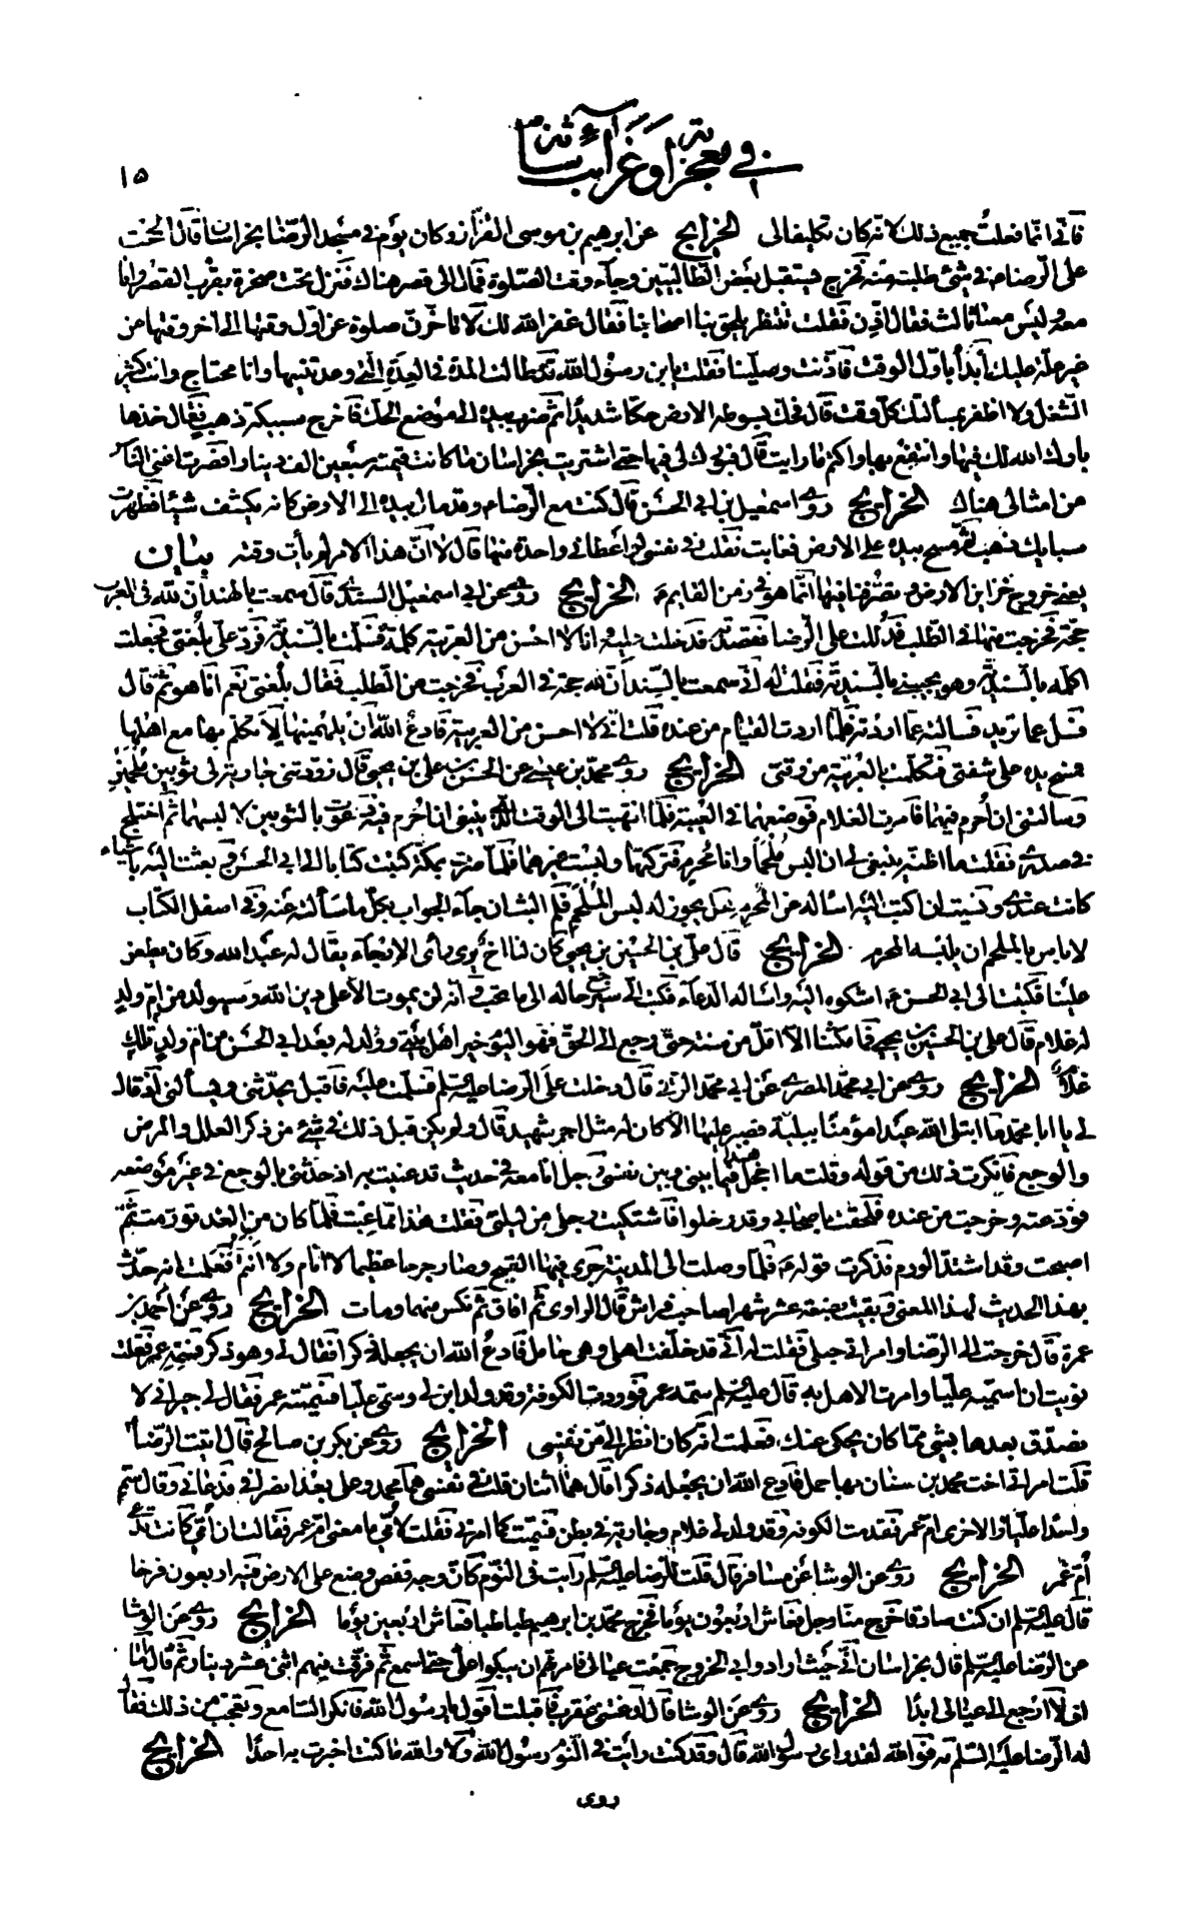 في معجزاته وغرائب شأنه
١٥
فاني انما فعلت جميع ذلك لانه كان تكليفا لى الخرايج عن ابرهيم بن موسى القزاز وكان يؤم في مسجد الرضا بخراسان قال الححت
على الرضا ع في شئ طلبته منه فخرج يستقبل بعض الطالبيين وجاء وقت الصلوة فمال الى قصر هناك فنزل تحت صخرة بقرب القصر وانا
معه وليس معنا ثالث فقال اذن فقلت ننتظر يلحق بنا اصحابنا فقال غفر الله لك لا تاخرن صلوة عن اول وقتها الى آخر وقتها من
غير علة عليك ابدأ باول الوقت فاذنت وصلينا فقلت يا بن رسول الله قد طالت المدة في العدة التي وعدتنيها وانا محتاج وانت كثير
الشغل ولا اظفر بمسألتك كل وقت قال فحك بسوطه الارض حكا شديدا ثم ضرب بيده الى موضع الحك فاخرج سبيكة ذهب فقال خذها
بارك الله لك فيها وانتفع بها واكتم ما رايت قال فبورك لي فيها حتى اشتريت بخراسان ما كانت قيمته سبعين الف دينار فصرت اغنى الناس
من امثالى هناك الخرايج روى اسمعيل بن ابي الحسن قال كنت مع الرضا ع وقد مال بيده الى الارض كانه يكشف شيئا فظهرت
سبايك ذهب ثم مسح بيده على الارض فغابت فقلت في نفسي لو اعطاني واحدة منها قال لا ان هذا الامر لم يأت وقته بيان
يعني خروج خزاين الارض وتصرفنا فيها انما هو في زمن القايم ع الخرايج روى عن ابي اسمعيل السندي قال سمعت بالهند ان لله في العرب
حجة فخرجت منها في الطلب فدللت على الرضا فقصدته فدخلت عليه وانا لا احسن من العربية كلمة فسلمت بالسندية فرد علي بلغتي فجعلت
اكلمه بالسندية وهو يجيبني بالسندية فقلت له اني سمعت بالسند ان لله حجة في العرب فخرجت من الطلب فقال بلغتي نعم انا هو ثم قال
فسل عما تريد فسالته عما اردته فلما اردت القيام من عنده قلت اني لا احسن من العربية فادع الله ان يلهمنيها لاتكلم بها مع اهلها
فمسح يده على شفتي فتكلمت بالعربية من وقتي الخرايج روى محمد بن عيسى عن الحسن بن علي بن يحيى قال زودتني جارية لى ثوبين ملحمين
وسالتني ان احرم فيهما فامرت الغلام فوضعهما في العيبة فلما انتهيت الى الوقت الذي ينبغي ان احرم فيه دعوت بالثوبين لالبسهما ثم اختلج
في صدري فقلت ما اظنه ينبغي لي ان البس ملحما وانا محرم فتركتهما ولبست غيرهما فلما صرت بمكة كتبت كتابا الى ابي الحسن ع وبعثت اليه باشياء
كانت عندي ونسيت ان اكتب اليه اساله عن المحرم هل يجوز له لبس الملحم فلم البث ان جاء الجواب بكل ما سألته عنه وفي اسفل الكتاب
لا باس بالملحم ان يلبسه المحرم الخرايج قال علي بن الحسين بن يحيى كان لنا اخ يرى راى الارجاء يقال له عبد الله وكان يطعن
علينا فكتبت الى ابي الحسن ع اشكوه اليه واساله الدعاء فكتب الي سيرجع حاله الى ما تحب وانه لن يموت الا على دين الله وسيولد من ام ولد
له غلام قال علي بن الحسين بن يحيى فما مكثنا الا اقل من سنة حتى رجع الى الحق فهو اليوم خير اهل بيتي وولد له بعد ابي الحسن من ام ولد تلك
غلام الخرايج روى عن ابي محمد المصري عن ابي محمد الرقي قال دخلت على الرضا عليه السلم فسلمت عليه فاقبل يحدثني ويسألني اذ قال
لي يا ابا محمد ما ابتلى الله عبدا مؤمنا ببلية فصبر عليها الا كان له مثل اجر شهيد قال ولم يكن قبل ذلك في شئ من ذكر العلل والمرض
والوجع فانكرت ذلك من قوله وقلت ما اخجل هذا فيما بيني وبين نفسي رجل انا معه في حديث قد عنيت به اذ حدثني بالوجع في غير موضعه
فودعته وخرجت من عنده فلحقت باصحابي وقد رحلوا فاشتكيت رجلي من ليلتي فقلت هذا مما عبت فلما كان من الغد تورمت ثم
اصبحت وقد اشتد الورم فذكرت قوله ع فلما وصلت الى المدينة جرى فيها القيح وصار جرحا عظيما لا انام ولا انيم فعلمت انه حدث
بهذا الحديث لهذا المعنى وبقيت بضعة عشر شهرا صاحب فراش قال الراوى ثم افاق ثم نكس منها ومات الخرايج روى عن احمد بن
عمرة قال خرجت الى الرضا وامراتي حبلى فقلت له اني قد خلفت اهلى وهي حامل فادع الله ان يجعله ذكرا فقال لي وهو ذكر فسمه عمر فقلت
نويت ان اسميه عليا وامرت الاهل به قال عليه السلم سمه عمر فوردت الكوفة وقد ولد ابن لي وسمي عليا فسميته عمر فقال لي جيراني لا
نصدق بعدها بشئ مما كان يحكى عنك فعلمت انه كان انظر الي من نفسي الخرايج روى عن بكر بن صالح قال اتيت الرضا
قلت امراتي اخت محمد بن سنان بها حمل فادع الله ان يجعله ذكرا قال هما اثنان قلت في نفسي هما محمد وعلي بعد انصرافي فدعاني وقال سم
واحدا عليا والاخرى ام عمر فقدمت الكوفة وقد ولد لي غلام وجارية في بطن فسميت كما امرني فقلت لامي ما معنى ام عمر فقالت ان امي كانت تدعى
ام عمر الخرايج روى عن الوشا عن مسافر قال قلت للرضا عليه السلم رايت في النوم كان وجه قفص وضع على الارض فيه اربعون فرخا
قال عليه السلم ان كنت صادقا خرج منا رجل فعاش اربعون يوما فخرج محمد بن ابرهيم طباطبا فعاش اربعين يوما الخرايج روى عن الوشا
عن الرضا عليه السلم قال بخراسان اني حيث ارادوا بي الخروج جمعت عيالى فامرتهم ان يبكوا علي حتى اسمع ثم فرقت فيهم اثنى عشر دينار ثم قال اما
انى لا ارجع الى عيالى ابدا الخرايج روى عن الوشا قال لدغتني عقرب فاقبلت اقول يا رسول الله فانكر السامع وتعجب من ذلك فقال
له الرضا عليه السلم مه فوالله لقد راى رسول الله قال وقد كنت رايت في النوم رسول الله ولا والله ما كنت اخبرت به احدا الخرايج
روى